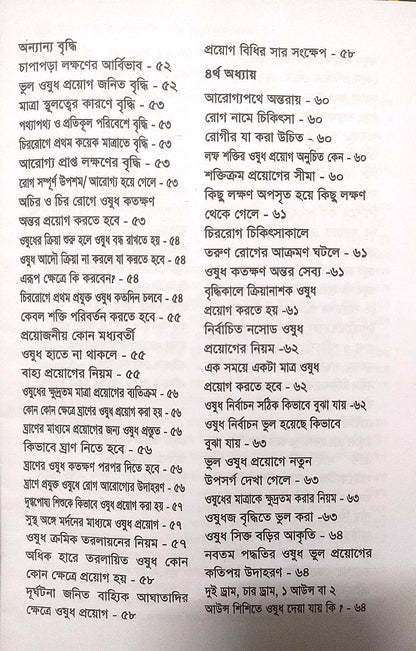 অন্যান্য বৃদ্ধি
চাপাপড়া লক্ষণের আর্বিভাব - ৫২
ভুল ওষুধ প্রয়োগ জনিত বৃদ্ধি - ৫২
মাত্রা স্থুলত্বের কারণে বৃদ্ধি - ৫৩
পথ্যাপথ্য ও প্রতিকূল পরিবেশে বৃদ্ধি - ৫৩
চিররোগে প্রথম কয়েক মাত্রাতে বৃদ্ধি - ৫৩
আরোগ্য প্রাপ্ত লক্ষণের বৃদ্ধি - ৫৩
রোগ সম্পূর্ণ উপশম/ আরোগ্য হয়ে গেলে - ৫৩
অচির ও চির রোগে ওষুধ কতক্ষণ
অন্তর প্রয়োগ করতে হবে - ৫৩
ওষুধের ক্রিয়া শুরু হলে ওষুধ বন্ধ রাখতে হয় - ৫৪
ওষুধ আদৌ ক্রিয়া না করলে যা করতে হবে - ৫৪
এরূপ ক্ষেত্রে কি করবেন? - ৫৪
চিররোগে প্রথম প্রযুক্ত ওষুধ কতদিন চলবে - ৫৪
কেবল শক্তি পরিবর্তন করতে হবে - ৫৫
প্রয়োজনীয় কোন মধ্যবর্তী
ওষুধ হাতে না থাকলে - ৫৫
বাহ্য প্রয়োগের নিয়ম - ৫৫
ওষুধের ক্ষুদ্রতম মাত্রা প্রয়োগের ব্যতিক্রম - ৫৬
কোন কোন ক্ষেত্রে ঘ্রাণের ওষুধ প্রয়োগ করা হয় - ৫৬
ঘ্রাণের মাধ্যমে প্রয়োগের জন্য ওষুধ প্রস্তুত - ৫৬
কিভাবে ঘ্রাণ নিতে হবে - ৫৬
ঘ্রাণের ওষুধ কতক্ষণ পরপর দিতে হবে - ৫৬
ঘ্রাণে প্রযুক্ত ওষুধে রোগ আরোগ্যের উদাহরণ - ৫৬
দুগ্ধপোষ্য শিশুকে কিভাবে ওষুধ প্রয়োগ করা হয় - ৫৭
সুস্থ অঙ্গে মর্দনের মাধ্যমে ওষুধ প্রয়োগ - ৫৭
ওষুধ ক্রমিক তরলায়নের নিয়ম - ৫৭
অধিক হারে তরলায়িত ওষুধ কোন
কোন ক্ষেত্রে প্রয়োগ হয় - ৫৮
দূর্ঘটনা জনিত বাহ্যিক আঘাতাদির
ক্ষেত্রে ওষুধ প্রয়োগ - ৫৮
প্রয়োগ বিধির সার সংক্ষেপ - ৫৮
৪র্থ অধ্যায়
আরোগ্যপথে অন্তরায় - ৬০
রোগ নামে চিকিৎসা - ৬০
রোগীর যা করা উচিত - ৬০
লক্ষ শক্তির ওষুধ প্রয়োগ অনুচিত কেন - ৬০
শক্তিক্রম প্রয়োগের সীমা - ৬০
কিছু লক্ষণ অপসৃত হয়ে কিছু লক্ষণ
থেকে গেলে - ৬১
চিররোগ চিকিৎসাকালে
তরুণ রোগের আক্রমণ ঘটলে - ৬১
ওষুধ কতক্ষণ অন্তর সেব্য -৬১
বৃদ্ধিকালে ক্রিয়ানাশক ওষুধ
প্রয়োগ করতে হয় -৬১
নির্বাচিত নসোড ওষুধ
প্রয়োগের নিয়ম -৬২
এক সময়ে একটা মাত্র ওষুধ
প্রয়োগ করতে হবে - ৬২
ওষুধ নির্বাচন সঠিক কিভাবে বুঝা যায় -৬২
ওষুধ নির্বাচন ভুল হয়েছে কিভাবে
বুঝা যায় - ৬৩
ভুল ওষুধ প্রয়োগে নতুন
উপসর্গ দেখা গেলে - ৬৩
ওষুধের মাত্রাকে ক্ষুদ্রতম করার নিয়ম - ৬৩
ওষুধজ বৃদ্ধিতে ভুল করা -৬৩
ওষুধ সিক্ত বড়ির আকৃতি - ৬৪
নবতম পদ্ধতির ওষুধ ভুল প্রয়োগের
কতিপয় উদাহরণ - ৬৪
দুই ড্রাম, চার ড্রাম, ১ আউন্স বা ২
আউন্স শিশিতে ওষুধ দেয়া যায় কি ? - ৬৪